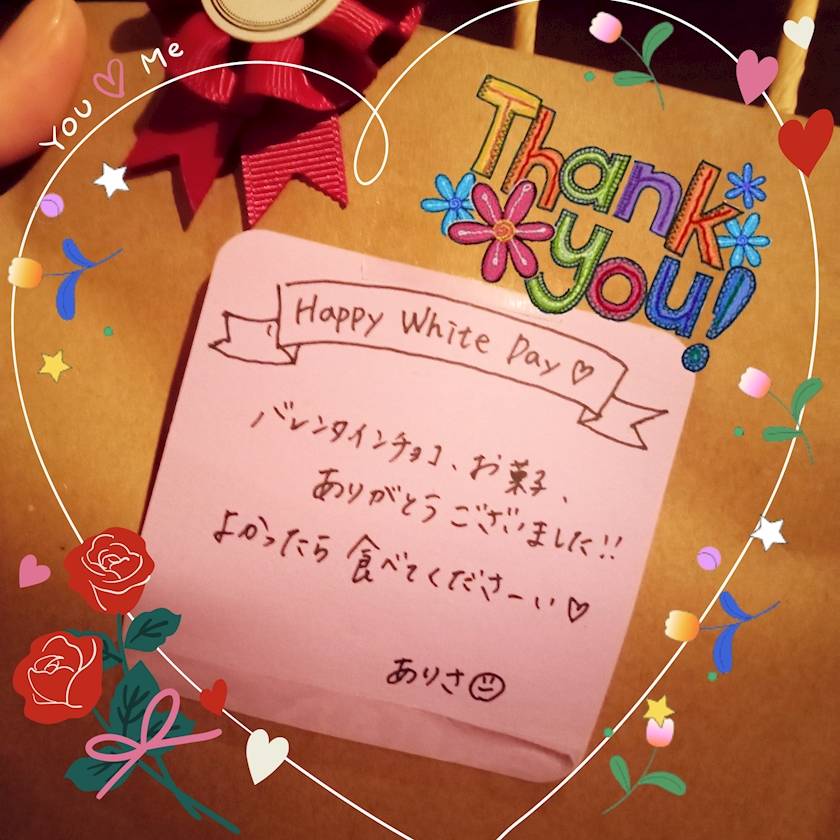 You ♡ Me
Thank
you!
Happy White Day ♡
バレンタインチョコ、お菓子、
ありがとうございました!!
よかったら 食べてくださーい♡
ありさ☺